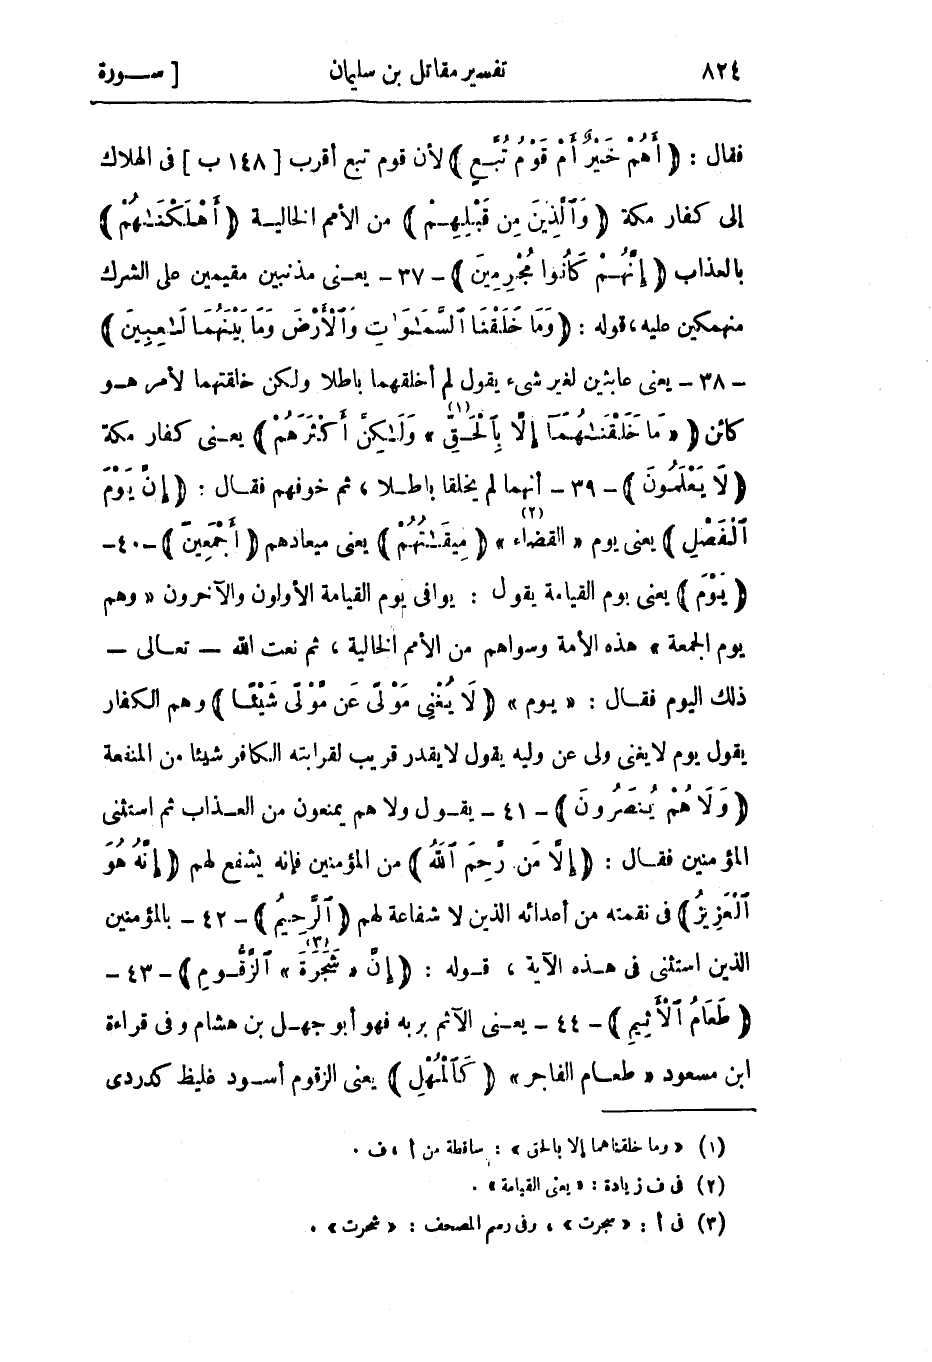 ٨٢٤ تفسير مقاتل بن سليمان [ ســورة
فقال : ﴿ أَهُمْ خَيْرٌ أَمْ قَوْمُ تُبَّعٍ ﴾ لأن قوم تبع أقرب [ ١٤٨ ب ] فى الهلاك
إلى كفار مكة ﴿ وَٱلَّذِينَ مِن قَبْلِهِمْ ﴾ من الأمم الخاليـة ﴿ أَهْلَكْنَـٰهُمْ ﴾
بالعذاب ﴿ إِنَّهُـمْ كَانُوا مُجْرِمِينَ ﴾ - ٣٧ - يعـنى مذنبين مقيمين على الشرك
منهمكين عليه، قوله : ﴿ وَمَا خَلَقْنَا ٱلسَّمَـٰوَ ٰتِ وَٱلْأَرْضَ وَمَا بَيْنَهُمَا لَـٰعِبِينَ ﴾
- ٣٨ - يعنى عابثين لغير شىء يقول لم أخلقهما باطلا ولكن خلقتهما لأمر هـو
كائن ﴿ « مَا خَلَقْنَـٰهُمَآ إِلَّا بِٱلْحَـقِّ » (١) وَلَـٰكِنَّ أَكْثَرَهُمْ ﴾ يعـنى كفار مكة
﴿ لَا يَعْلَمُونَ ﴾ - ٣٩ - أنهما لم يخلقا باطـلا ، ثم خوفهم فقـال : ﴿ إِنَّ يَوْمَ
ٱلْفَصْلِ ﴾ يعنى يوم « القضاء » (٢) ﴿ مِيقَـٰتُهُمْ ﴾ يعنى ميعادهم ﴿ أَجْمَعِينَ ﴾ - ٤٠ -
﴿ يَوْمَ ﴾ يعنى يوم القيامة يقول : يوافى يوم القيامة الأولون والآخرون « وهم
يوم الجمعة » هذه الأمة وسواهم من الأمم الخالية ، ثم نعت الله — تعـالى —
ذلك اليوم فقـال : « يـوم » ﴿ لَا يُغْنِى مَوْلًى عَن مَّوْلًى شَيْئًـا ﴾ وهم الكفار
يقول يوم لا يغنى ولى عن وليه يقول لا يقدر قريب لقرابته الكافر شيئا من المنفعة
﴿ وَلَا هُمْ يُنصَرُونَ ﴾ - ٤١ - يقـول ولا هم يمنعون من العـذاب ثم استثنى
المؤمنين فقـال : ﴿ إِلَّا مَن رَّحِمَ ٱللَّهُ ﴾ من المؤمنين فإنه يشفع لهم ﴿ إِنَّهُ هُوَ
ٱلْعَزِيزُ ﴾ فى نقمته من أعدائه الذين لا شفاعة لهم ﴿ ٱلرَّحِيمُ ﴾ - ٤٢ - بالمؤمنين
الذين استثنى فى هـذه الآية ، قـوله : ﴿ إِنَّ « شَجَرَةَ » (٣) ٱلزَّقُّـومِ ﴾ - ٤٣ -
﴿ طَعَامُ ٱلْأَثِيمِ ﴾ - ٤٤ - يعـنى الآثم بربه فهو أبو جهـل بن هشام وفى قراءة
ابن مسعود « طعـام الفاجر » ﴿ كَٱلْمُهْلِ ﴾ يعنى الزقوم أسـود غليظ كدردى
(١) « وما خلقناهما إلا بالحق » : ساقطة من أ ، ف .
(٢) فى ف زيادة : « يعنى القيامة » .
(٣) فى أ : « سجرت » ، وفى رسم المصحف : « شجرت » .